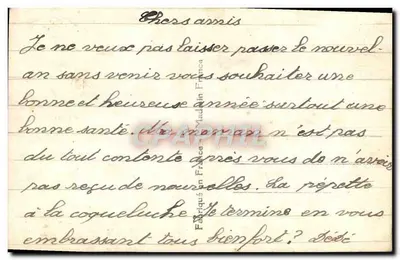 Chers amis
Je ne veux pas laisser passer le nouvel-
an sans venir vous souhaiter une
bonne et heureuse année surtout une
bonne santé. Ma maman n'est pas
du tout contente après vous de n'avoir
pas reçu de nouvelles. La pépette
à la coqueluche Je termine en vous
embrassant tous bien fort? Dédé
Fabriqué en France - Made in France